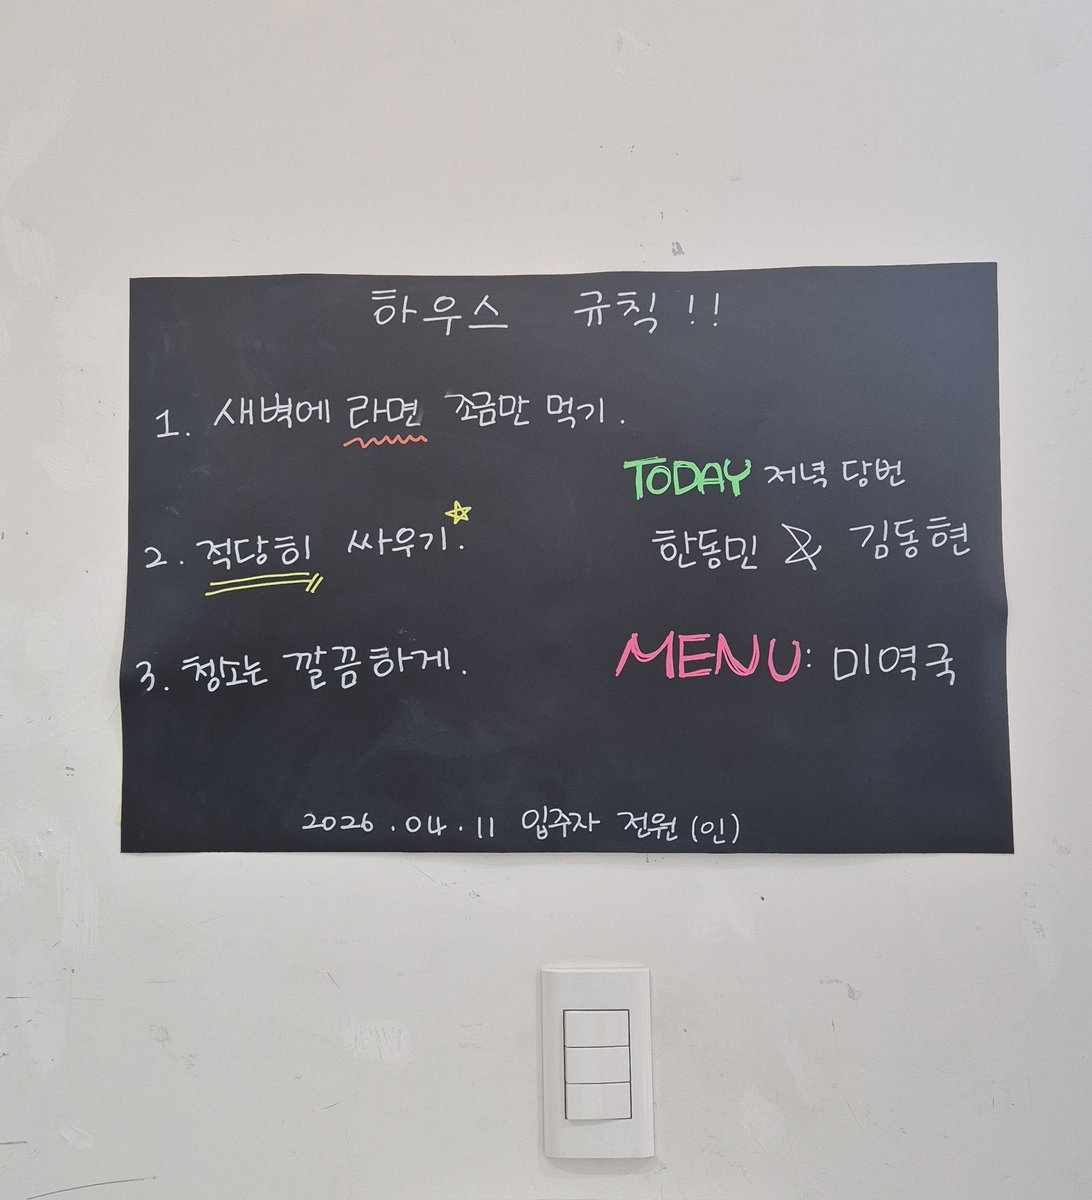 하우스 규칙!!
1. 새벽에 라면 조금만 먹기.
2. 적당히 싸우기.
3. 청소는 깔끔하게.
TODAY 저녁 당번
한동민 & 김동현
MENU: 미역국
2026.04.11 입주자 전원 (인)